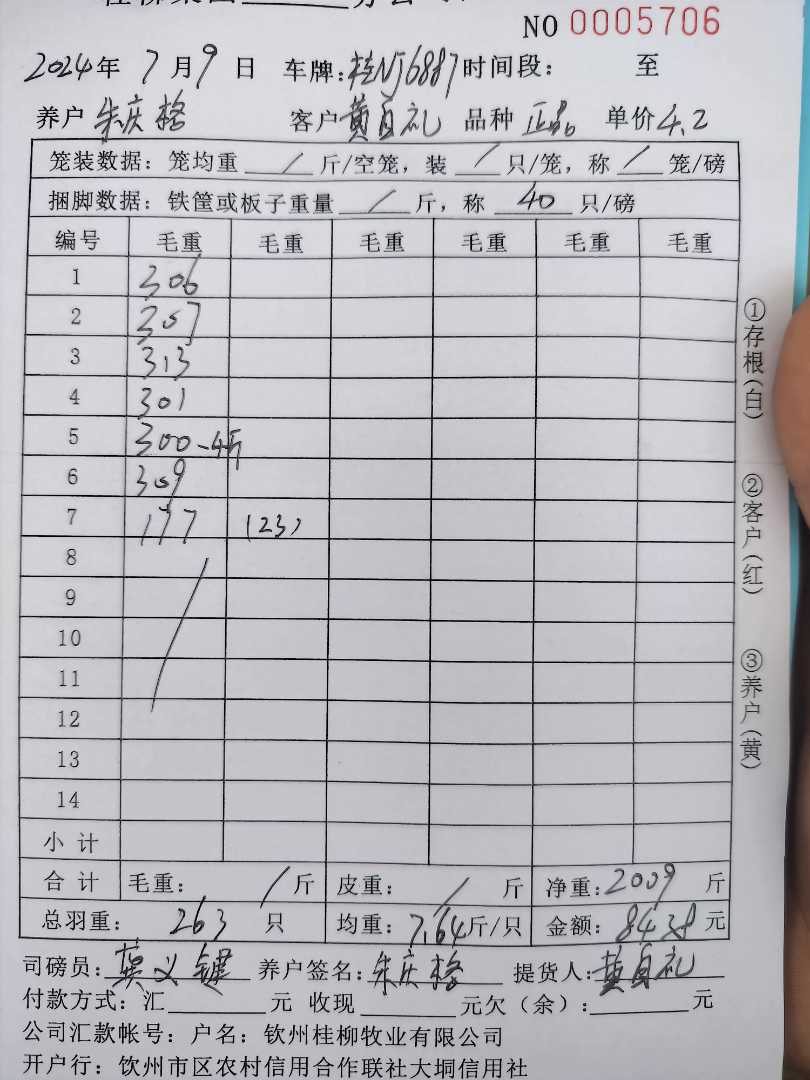 NO 0005706
2024年 7月9日 车牌:桂NJ6887 时间段: 至
养户 朱庆格 客户 黄自礼 品种 正品 单价 4.2
笼装数据:笼均重 / 斤/空笼,装 / 只/笼,称 / 笼/磅
捆脚数据:铁筐或板子重量 / 斤,称 40 只/磅
编号 毛重 毛重 毛重 毛重 毛重 毛重
1 306
2 307
3 313
4 301
5 300-4斤
6 309
7 177 (23)
8
9
10
11
12
13
14
小计
合计 毛重: / 斤 皮重: / 斤 净重:2009 斤
总羽重: 263 只 均重:7.64斤/只 金额:8438元
司磅员: 龚义键 养户签名:朱庆格 提货人:黄自礼
付款方式:汇 元 收现 元欠(余): 元
公司汇款帐号:户名:钦州桂柳牧业有限公司
开户行:饮州市区农村信用合作联社大垌信用社
①存根(白)
②客户(红)
③养户(黄)